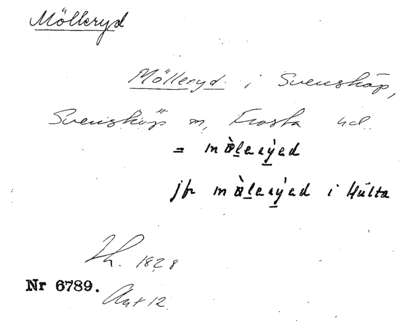 Mölleryd
Mölleryd i Svensköp,
Svensköp sn, Frosta hd.
= mø̀leṛýed
jfr mø̀leṛýed i Hulta
Th. 1828
Nr 6789.
Ant 12